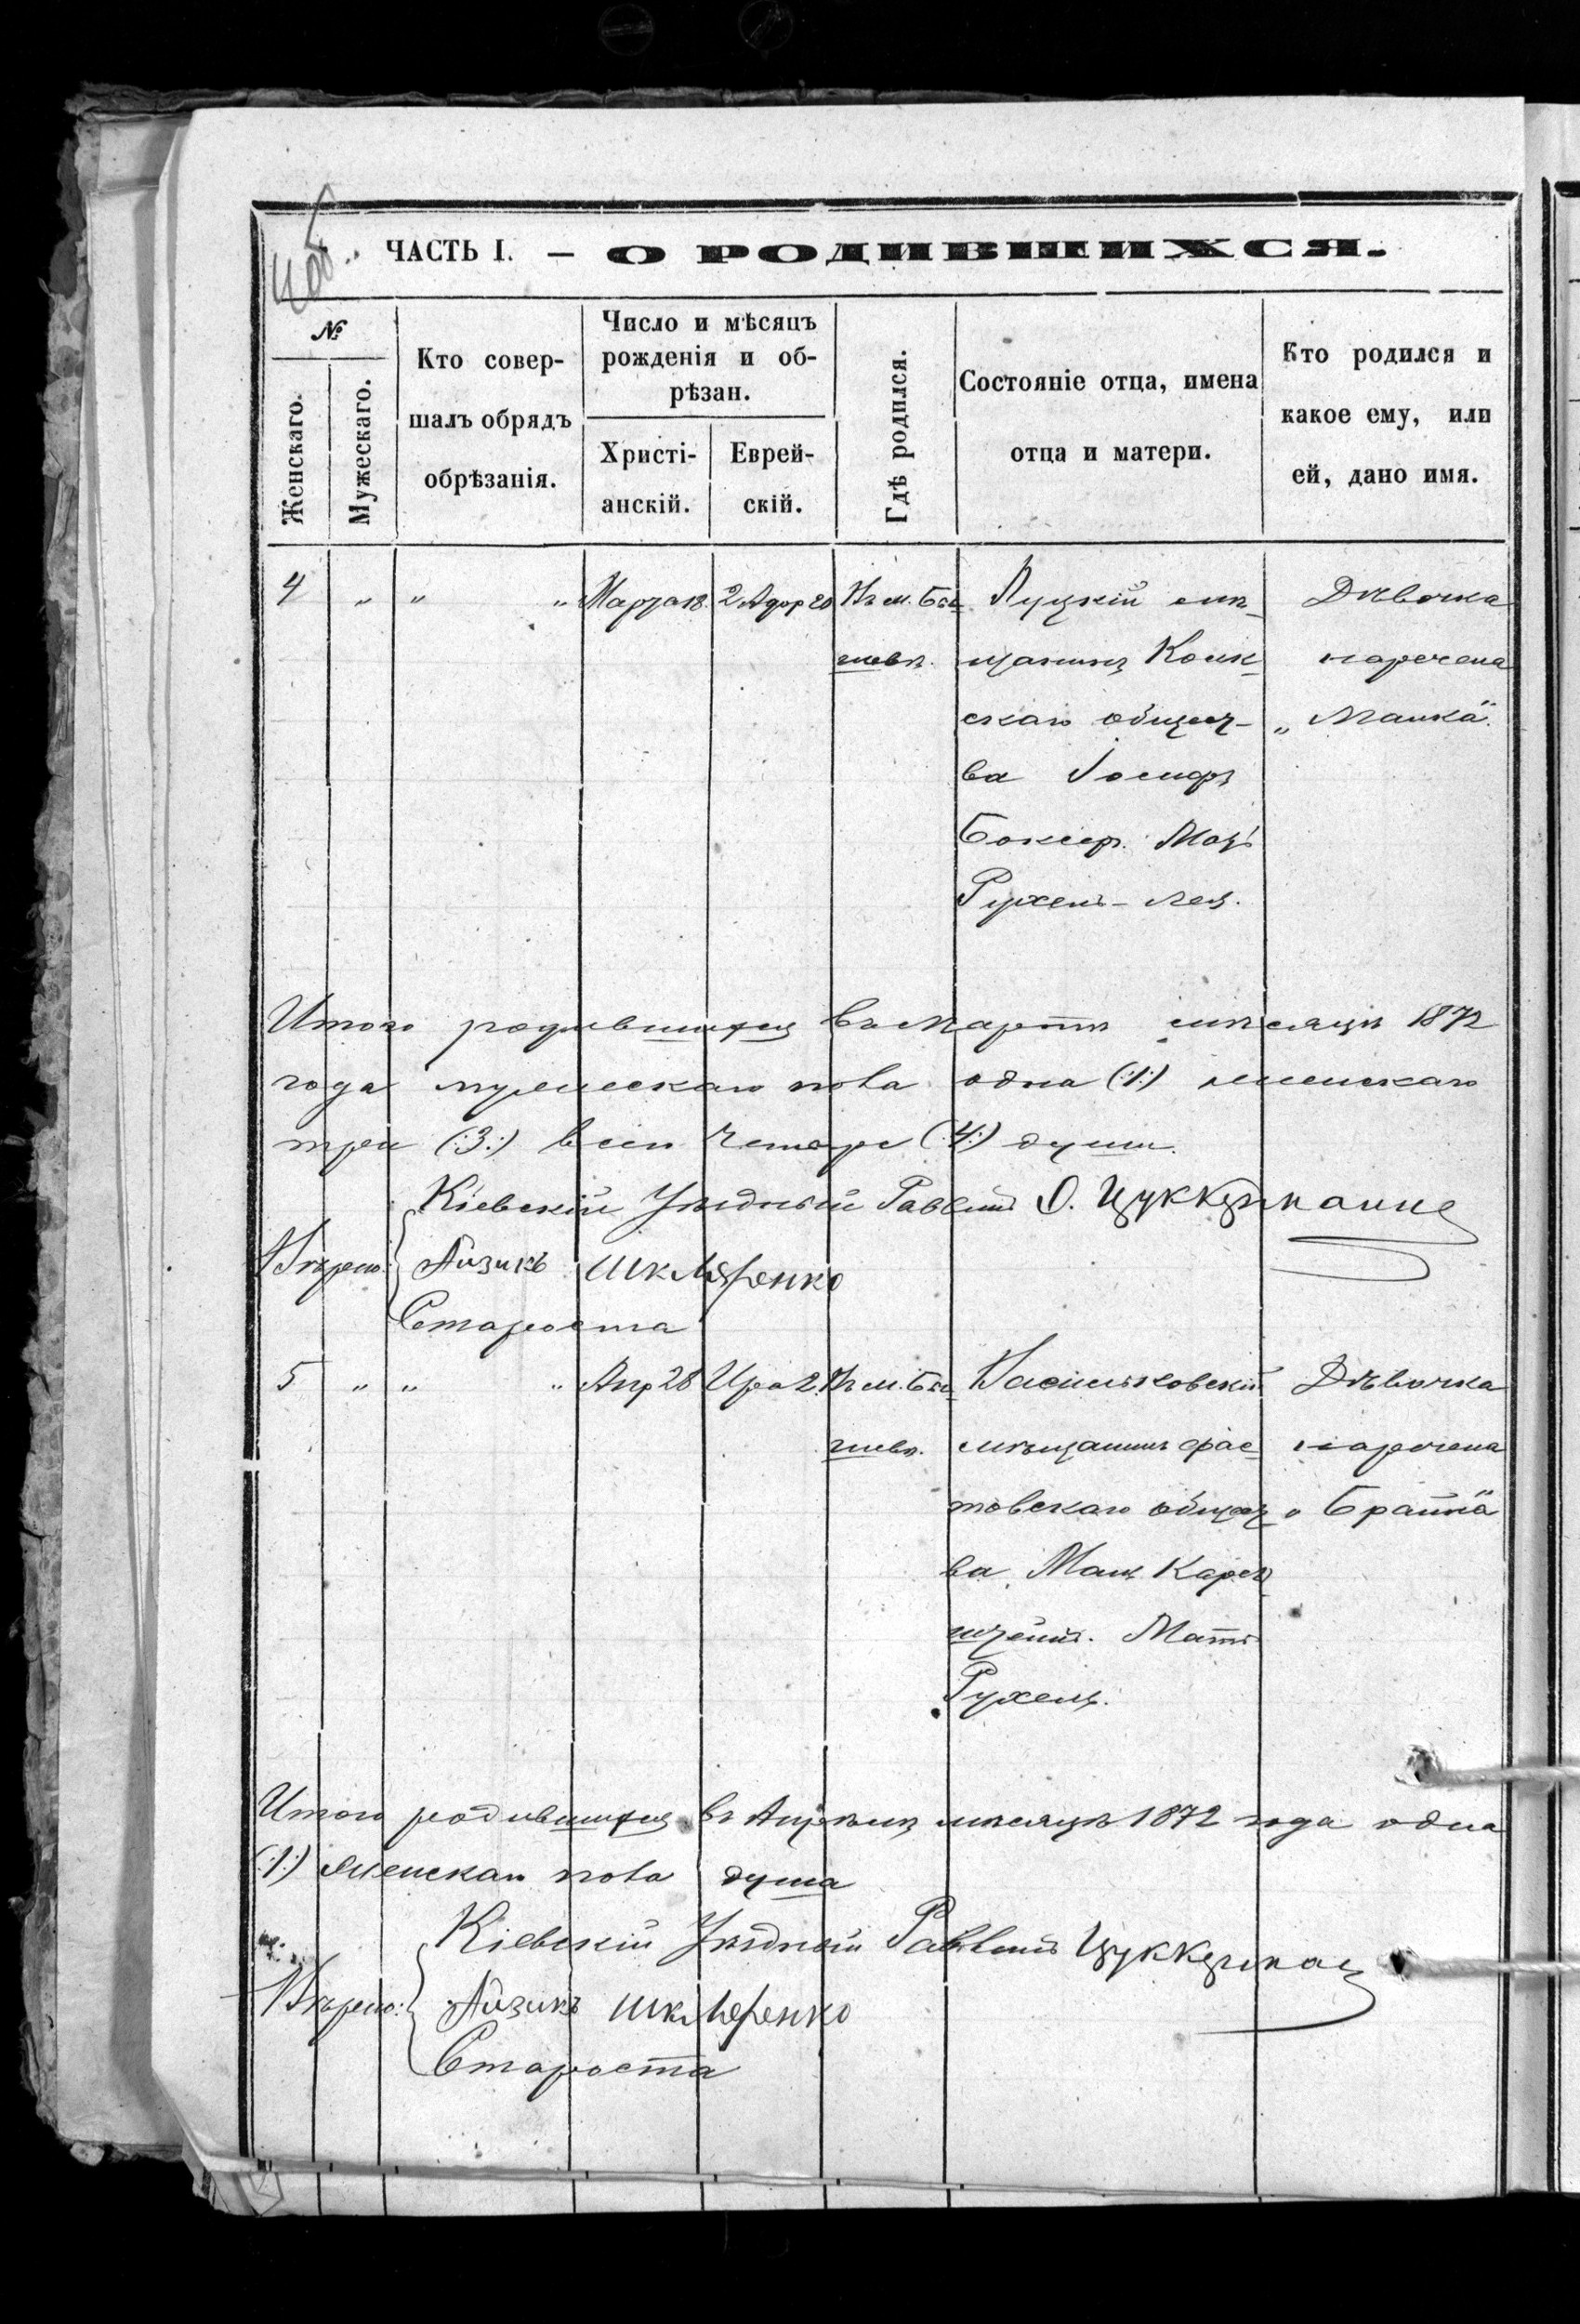 405
ЧАСТЬ I. — О РОДИВШИХСЯ.
№
Женскаго.
Мужескаго.
Кто совер-
шалъ обрядъ
обрѣзанія.
Число и мѣсяцъ
рожденія и об-
рѣзан.
Христі-
анскій.
Еврей-
скій.
Гдѣ родился.
Состояніе отца, имена
отца и матери.
Кто родился и
какое ему, или
ей, дано имя.
4 „ „ „ Марта 18. 2 Адор 20 Въ м. Бы-
шевѣ.
Луцкій мѣ-
щанинъ
скаго общест-
ва Іосифъ
Мать
Рухель-Лея.
Дѣвочка
наречена
„Манка“.
Итого родившихся въ Мартѣ мѣсяцѣ 1872
года мужескаго пола одна (:1:) женскаго
три (:3:) всего четыре (:4:) души.
Кіевскій Уѣздный Раввинъ О. Цуккерманъ
Вѣрно: Айзикъ Шкляренко
Староста
5 „ „ „ Апр 28 Іра 2. Въ м. Бы-
шевѣ.
Васильковскій
мѣщанинъ Фас-
товскаго общест-
ва,
Мать
Рухель.
Дѣвочка
наречена
„Брайна“
Итого родившихся въ Апрѣлѣ мѣсяцѣ 1872 года одна
(:1:) женскаго пола душа
Кіевскій Уѣздный Раввинъ Цуккерманъ
Вѣрно: Айзикъ Шкляренко
Староста